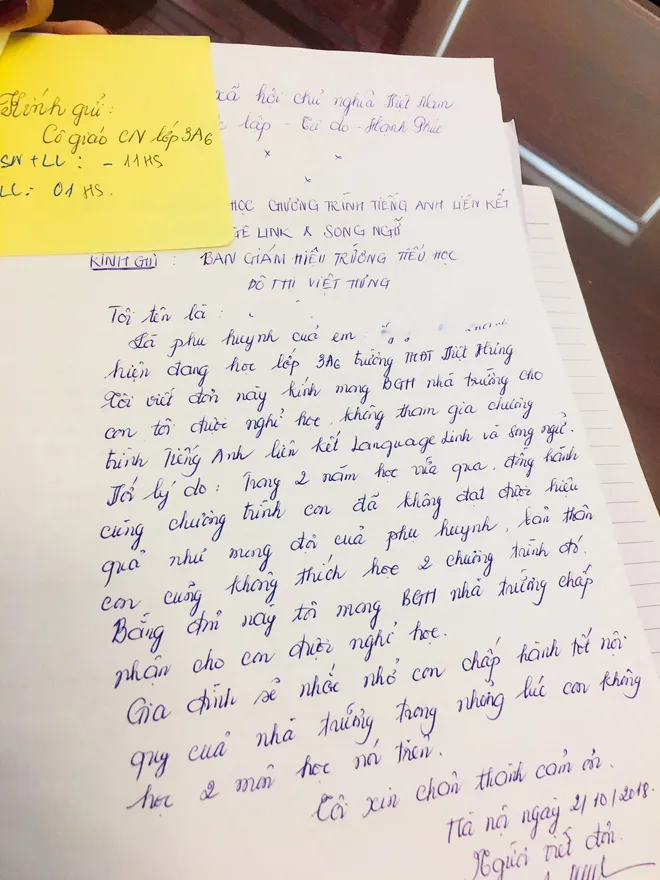 Kính gửi:
Cô giáo CN lớp 3A6
SN + LL: - 11 HS
LL: 01 HS.
xã hội chủ nghĩa Việt Nam
lập - Tự do - Hạnh Phúc
x x
x
HỌC CHƯƠNG TRÌNH TIẾNG ANH LIÊN KẾT
GE LINK & SONG NGỮ
KÍNH GỬI : BAN GIÁM HIỆU TRƯỜNG TIỂU HỌC
ĐÔ THỊ VIỆT HƯNG
Tôi tên là :
Là phụ huynh của em :
hiện đang học lớp 3A6 trường THĐT Việt Hưng
Tôi viết đơn này kính mong BGH nhà trường cho
con tôi được nghỉ học, không tham gia chương
trình Tiếng Anh liên kết Language Link và song ngữ.
Với lý do : Trong 2 năm học vừa qua, đồng hành
cùng chương trình con đã không đạt được hiệu
quả như mong đợi của phụ huynh, bản thân
con cũng không thích học 2 chương trình đó.
Bằng đơn này tôi mong BGH nhà trường chấp
nhận cho con được nghỉ học.
Gia đình sẽ nhắc nhở con chấp hành tốt nội
quy của nhà trường trong những lúc con không
học 2 môn học nói trên.
Tôi xin chân thành cảm ơn.
Hà nội ngày 2/10/2018.
Người viết đơn.